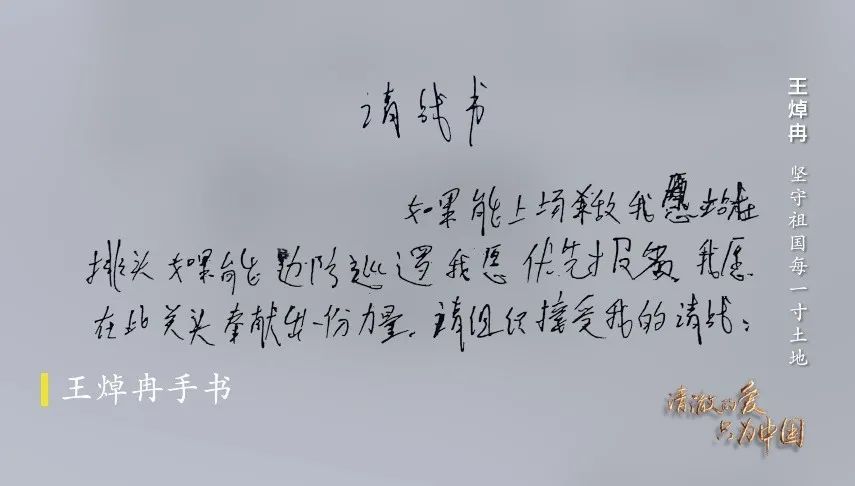 请战书
如果能上场杀敌我愿站在
排头如果能边防巡逻我愿优先报名。我愿
在此关头奉献出一份力量。请组织接受我的请战:
王焯冉手书
王焯冉 坚守祖国每一寸土地
清澈的爱
只为中国